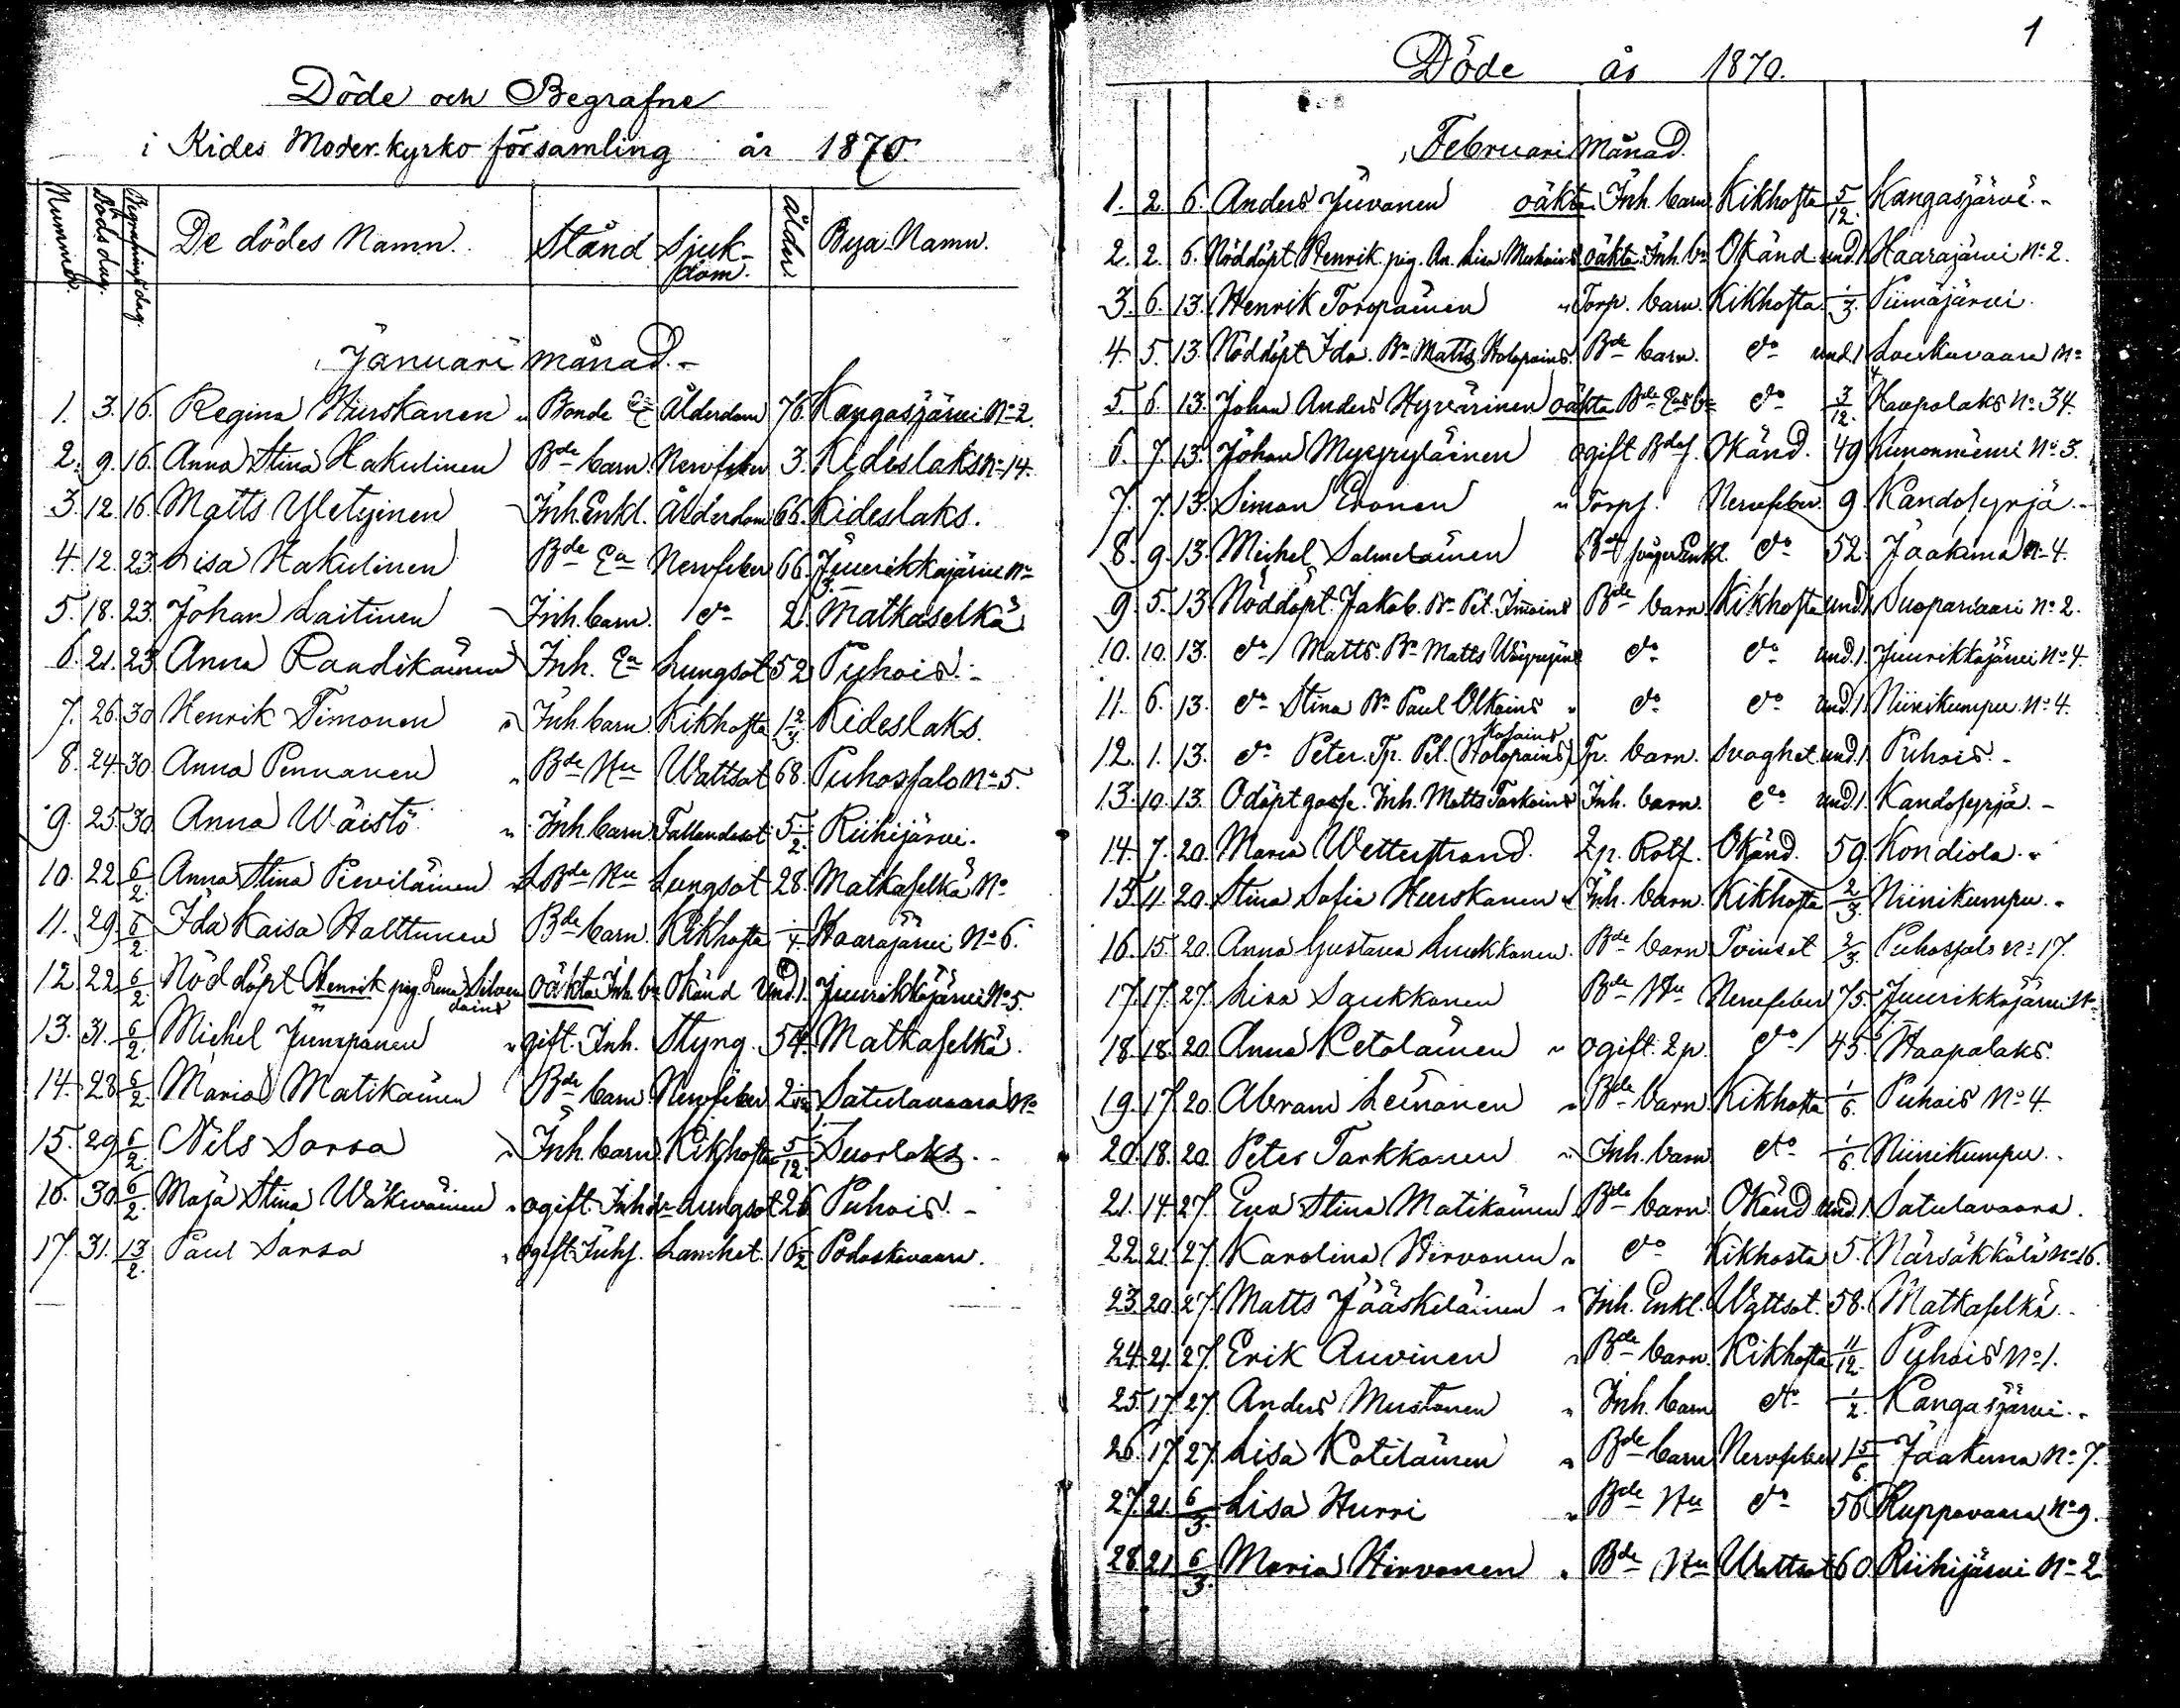 Döde och Begrafne
i Kides Moderkyrko församling år 1870.
Nummer. Dödsdag. Begrafningsdag. De dödes Namn. Stånd Sjukdom. Ålder Bya-Namn.
Januari månad.-
1. 3. 16. Regina Hurskanen " Bonde Ålderdom 76. Kangasjärvi No 2.
2. 9. 16. Anna Stina Hakulinen Bde barn Nervfeber 3. Kideslaks No 14.
3. 12. 16. Matts Yletyinen Inh. Enkl. Ålderdom 66. Kideslaks.
4. 12. 23. Lisa Hakulinen Bde Ea Nervfeber 66. Juurikkajärvi No 3.
5. 18. 23. Johan Laitinen Inh. barn. do 2. Matkaselkä
6. 21. 23 Anna Raadikainen Inh. Ea Lungsot 52 Puhois.-
7. 26. 30 Henrik Timonen " Inh. barn. Kikhosta 1 2/3. Kideslaks.
8. 24 30 Anna Pennanen " Bde Hu Wattsot 68. Puhossalo No 5.
9. 25 30. Anna Wäistö " Inh. barn. Fallandesot 5 1/2. Riihijärvi.
10. 22 6/2. Anna Stina Pieviläinen Bde Hu Lungsot 28. Matkaselkä No
11. 29 6/2. Ida Kaisa Halttunen Bde barn Kikhosta 1/4. Haarajärvi No 6.
12 22 6/2. Nöddöpt Henrik pig. Lena Silvendoins oäkta Inh. bn Okänd und. 1. Juurikkajärvi No 5.
13. 31. 6/2. Michel Jumpanen " gift. Inh. Styng. 54. Matkaselkä.
14. 28 6/2. Maria Matikainen Bde barn Nervfeber 2 Satulavaara No
15. 29 6/2. Nils Sorsa " Inh. barn Kikhosta 5/12. Suorlaks.
16. 30 6/2. Maja Stina Wäkeväinen " ogift. Inh Lungsot 26 Puhois.-
17. 31. 13/2. Paul Sorsa " ogift Inhs. Lamhet. 16 1/2 Potoskavaara.
1
Döde år 1870.
Februari Månad.
1. 2. 6. Anders Juvonen oäkta Inh. barn Kikhosta 5/12. Kangasjärvi.-
2. 2. 6. Nöddöpt Henrik pig. An. Lisa oäkta Inh. bn Okänd und. 1. Haarajärvi No 2.
3. 6. 13. Henrik Toropainen " Torp. barn. Kikhosta. 1/3. Piimäjärvi.
4. 5. 13. Nöddöpt Ida. Bn Matts Holopains. Bde barn. do und. 1. Loukuvaara No 4
5. 6. 13. Johan Anders Hyvärinen oäkta Bde Eas bn do 3/12. Haapolaks No 34.
6. 7. 13. Johan Myyryläinen ogift Bdes. Okänd. 49 Kunonniemi No 3.
7. 7. 13. Simon Eronen " Torps. Nervfeber. 9. Kandosyrjä.-
8. 9. 13. Michel Salmelainen Bde svåger Enkl. do 52. Jaakima No 4.
9. 5. 13. Nöddöpt Jakob. Bn Pet. Imoins Bde barn Kikhosta und. 1. Suoparsaari No 2.
10. 10. 13. do Matts. Bn Matts do do und. 1. Juurikkajärvi No 4.
11. 6. 13. do Stina Bn Paul Olkoins " do do und. 1. Niinikumpu No 4.
12. 1. 13. do Peter. Tp. Pet. (Holopains) Kosains Tp. barn. Svaghet und. 1. Puhois.-
13. 10. 13. Odöpt gosse. Inh. Matts Torkoins Inh. barn. do und. 1. Kandosyrjä.-
14. 7. 20. Maria Wetterstrand. Qp. Rotf. Okänd. 59 Kondiola.-
15. 11. 20. Stina Sofia Hurskanen " Inh. barn. Kikhosta 2/3 Niinikumpu.-
16. 15. 20. Anna Gustava Luukkonen. Bde barn Tvinsot 2/3. Puhossalo No 17.
17. 17. 27. Lisa Saukkonen Bde Hu Nervfeber 75. Juurikkajärvi No
18. 18. 20 Anna Ketolainen " ogift. Qp. do 45. Haapalaks.
19. 17 20 Abram Leinonen " Bde barn Kikhosta 1/6. Puhois No 4.
20. 18. 20. Peter Tarkkonen " Inh. barn do 1/6. Niinikumpu.
21. 14. 27. Eva Stina Matikainen Bde barn. Okänd und. 1. Satulavaara.
22. 21. 27. Karolina Hirvonen " do Kikhosta 5. Närsäkkälä No 16.
23. 20. 27. Matts Jääskeläinen " Inh. Enkl. Wattsot. 58. Matkaselkä.
24. 21. 27. Erik Auvinen " Bde barn. Kikhosta 11/12. Puhois No 1.
25. 17. 27. Anders Mustonen " Inh. barn do 1/2. Kangasjärvi.-
26. 17. 27. Lisa Kotilainen " Bde barn Nervfeber 1 5/6. Jaakima No 7.
27. 21. 6/3. Lisa Hurri " Bde Hu do 56 Ruppovaara No 9.
28. 21. 6/3. Maria Hirvonen " Bde Hu Wattsot 60. Riihijärvi No 2